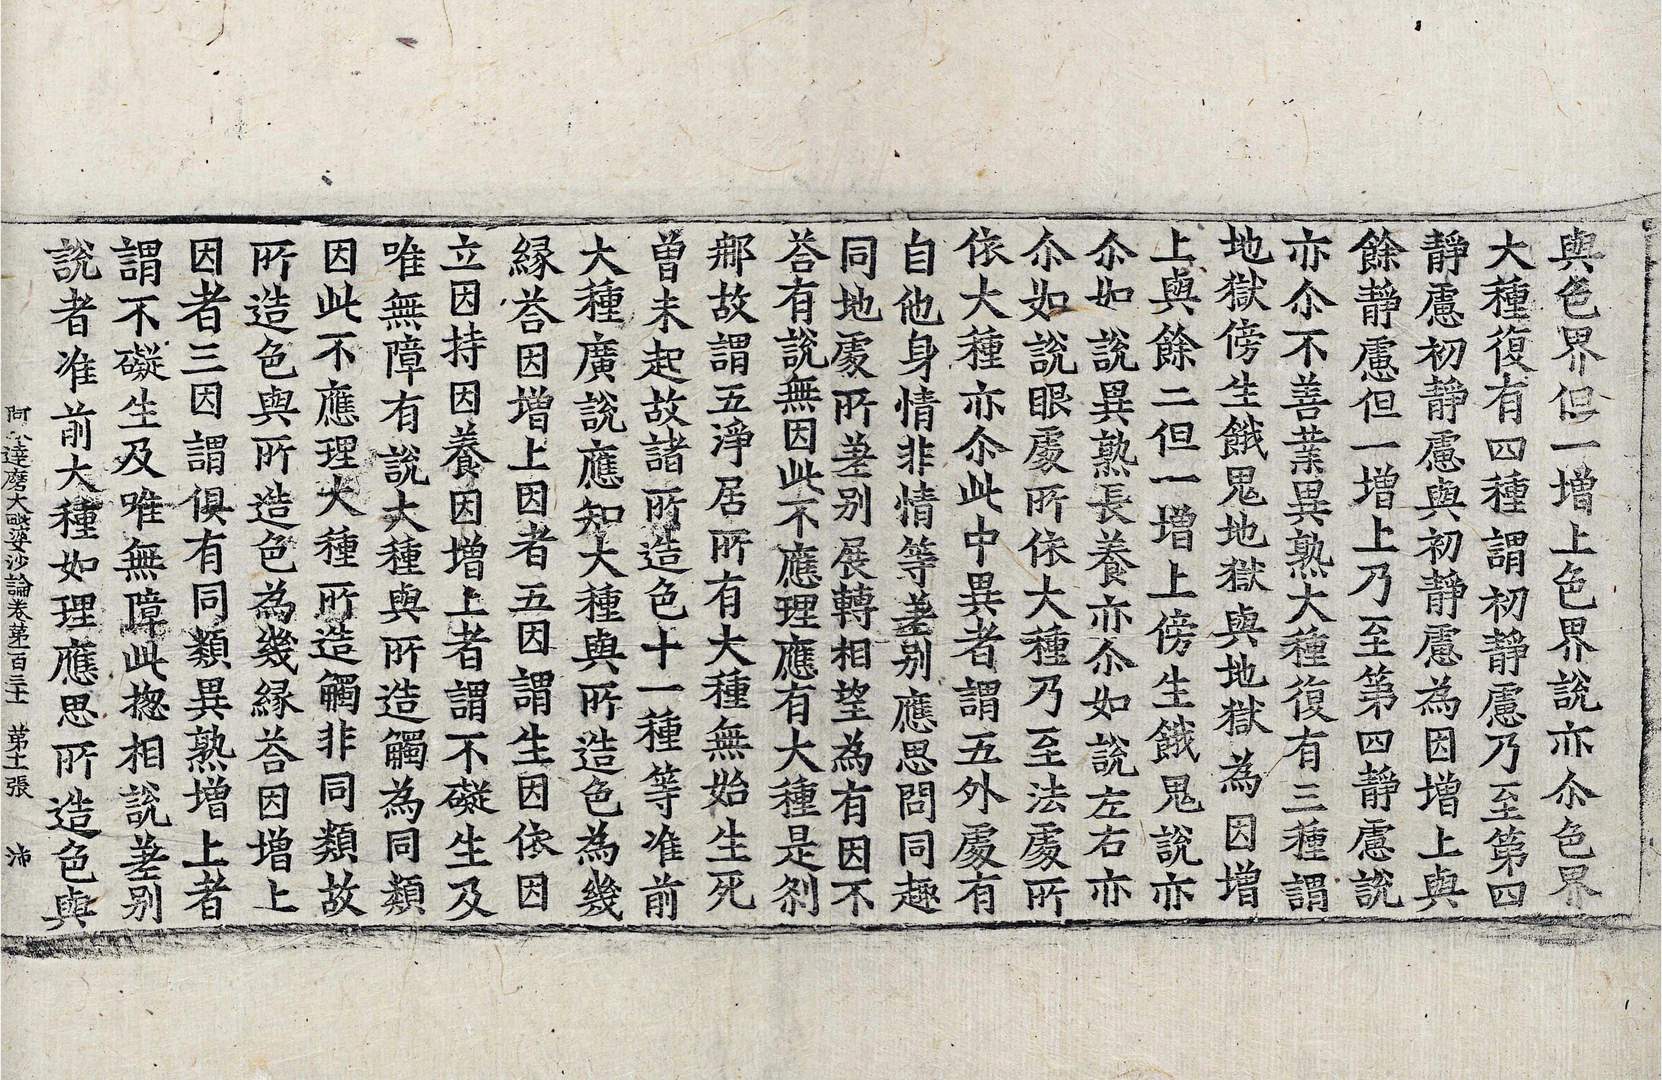 與色界但一增上色界說亦尒色界
大種復有四種謂初靜慮乃至第四
靜慮初靜慮與初靜慮為因增上與
餘靜慮但一增上乃至第四靜慮說
亦尒不善業異熟大種復有三種謂
地獄傍生餓鬼地獄與地獄為因增
上與餘二但一增上傍生餓鬼說亦
尒如說異熟長養亦尒如說左右亦
尒如說眼處所依大種乃至法處所
依大種亦尒此中異者謂五外處有
自他身情非情等差別應思問同趣
同地處所差別展轉相望為有因不
荅有說無因此不應理應有大種是剎
那故謂五淨居所有大種無始生死
曾未起故諸所造色十一種等准前
大種廣說應知大種與所造色為幾
緣荅因增上因者五因謂生因依因
立因持因養因增上者謂不礙生及
唯無障有說大種與所造觸為同類
因此不應理大種所造觸非同類故
所造色與所造色為幾緣荅因增上
因者三因謂俱有同類異熟增上者
謂不礙生及唯無障此揔相說差別
說者准前大種如理應思所造色與
阿毗達磨大毗婆沙論卷第一百三十一 第十一張 沛